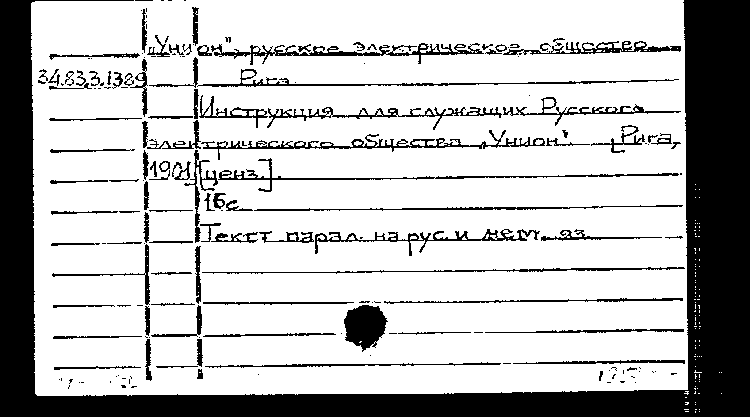 „Унион", русское электрическое общество.
34.83.3.1389 Рига.
Инструкция для служащих Русского
электрического общества „Унион". [Рига,
1901] [ценз.].
16с.
Текст парал. на рус. и нем. яз.